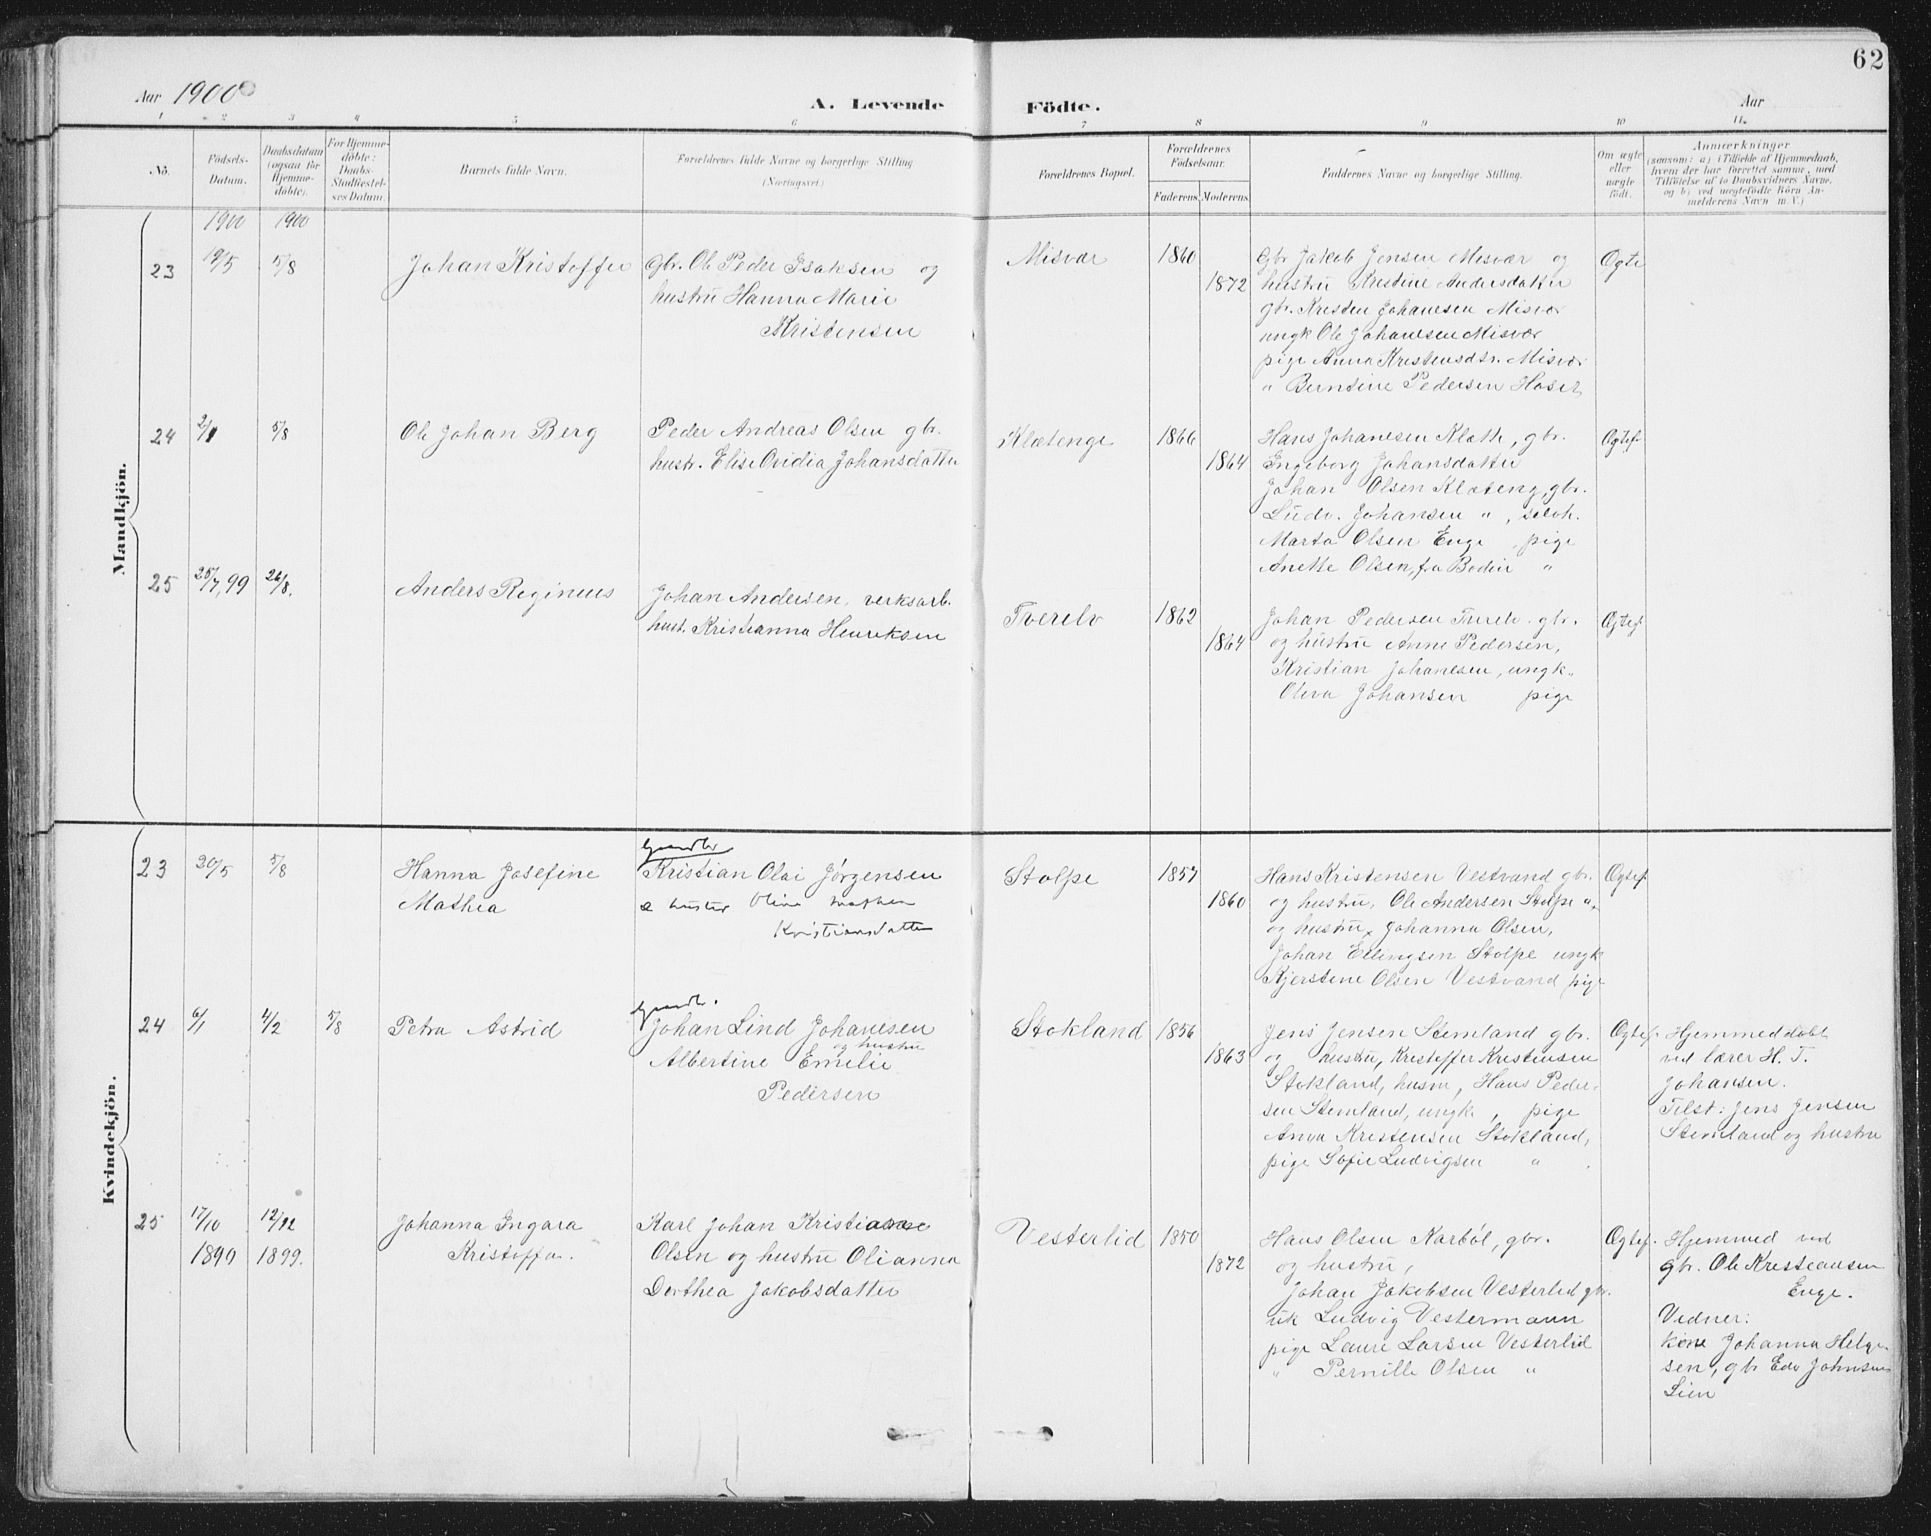 62
Aar 1900
A. Levende Födte.
Aar
1 2 3 4 5 6 7 8 9 10 11.
No.
Födsels-
Datum.
Daabsdatum
(ogsaa for
Hjemme-
döbte).
For Hjemme-
döbte:
Daabs-
Stadfæstel-
ses Datum.
Barnets fulde Navn.
Forældrenes fulde Navne og borgerlige Stilling
(Næringsvei.)
Forældrenes Bopæl.
Forældrenes
Födselsaar.
Faderens Moderens
Faddernes Navne og borgerlige Stilling.
Om ægte
eller
uægte
födt.
Anmærkninger
(saasom: a) i Tilfælde af Hjemmedaab,
hvem der har forrettet samme, med
Tilföielse af to Daabsvidners Navne,
og b) ved uægtefödte Börn An-
melderens Navn m. V.)
Mandkjön.
1900 1900
23 19/5 5/8 Johan Kristoffer
Gbr. Ole Peder Isaksen og
hustru Hanna Marie
Kristensen
Misvær 1860
1872
Gbr Jakob Jensen Misvær og
hustru Kristine Andersdatter
gbr. Kristen Johanesen Misvær
ungk Ole Johanesen Misvær
pige Anna Kristensdtr. Misvær
" Berntine Pedersen Hoset
Ogte
24 2/1 5/8 Ole Johan Berg
Peder Andreas Olsen gbr.
hustr. Elise Ovidia Johansdatter
Klætenge 1866
1864
Hans Johanesen Klætt, gbr.
Ingeborg Johansdatter
Johan Olsen Klæteng, gbr.
Ludv. Johansen ",
Marta Olsen Enge, pige
Anette Olsen, fra Bodin "
Ogtef.
25 25/7, 99 26/8. Anders Regineus
Johan Andersen, verksarb.
hust. Kristianna Henriksen
Tverelv 1862
1864
Johan Pedersen Tverelv. gbr.
og hustru Anne Pedersen,
Kristian Johanesen, ungk.,
Oliva Johansen pige
Ogtef
Kvindekjön.
23 20/5 5/8 Hanna Josefine
Mathea
Kristian Olai Jørgensen
Kristiansdatter
Stolpe 1857
1860
Hans Kristensen Vestvand gbr.
og hustru, Ole Andersen Stolpe ",
og hustru, Johanna Olsen,
Johan Ellingsen Stolpe ungk
Kjerstine Olsen Vestvand pige
Ogtef.
24 6/1 4/2 5/8 Petra Astrid
Johan Lind Johanesen
og hustru
Albertine Emelie
Pedersen
Stokland 1856
1863
Jens Jensen Stemland gbr.
og hustru, Kristoffer Kristensen
Stokland, husm, Hans Peder-
sen Stemland, ungk, pige
Anna Kristensen Stokland,
pige Sofie Ludvigsen "
Ogtef.
Hjemmedøbt
ved lærer H. T.
Johansen.
Tilst: Jens Jensen
Stemland og hustru
25 17/10 12/12 Johanna Ingara
1899 1899. Kristoffa.
Karl Johan Kristianse
Olsen og hustru Olianna
Dorthea Jakobsdatter
Vesterlid 1850
1872
Hans Olsen Karbøl, gbr.
og hustru,
Johan Jakobsen Vesterlid gbr.
uk Ludvig Vestermann
pige Laure Larsen Vesterlid
" Pernille Olsen "
Ogtef.
Hjemmed ved
gbr. Ole Kristiansen
Enge.
Vidner:
kone Johanna Helge-
sen, gbr Edv Johnsen
Lien